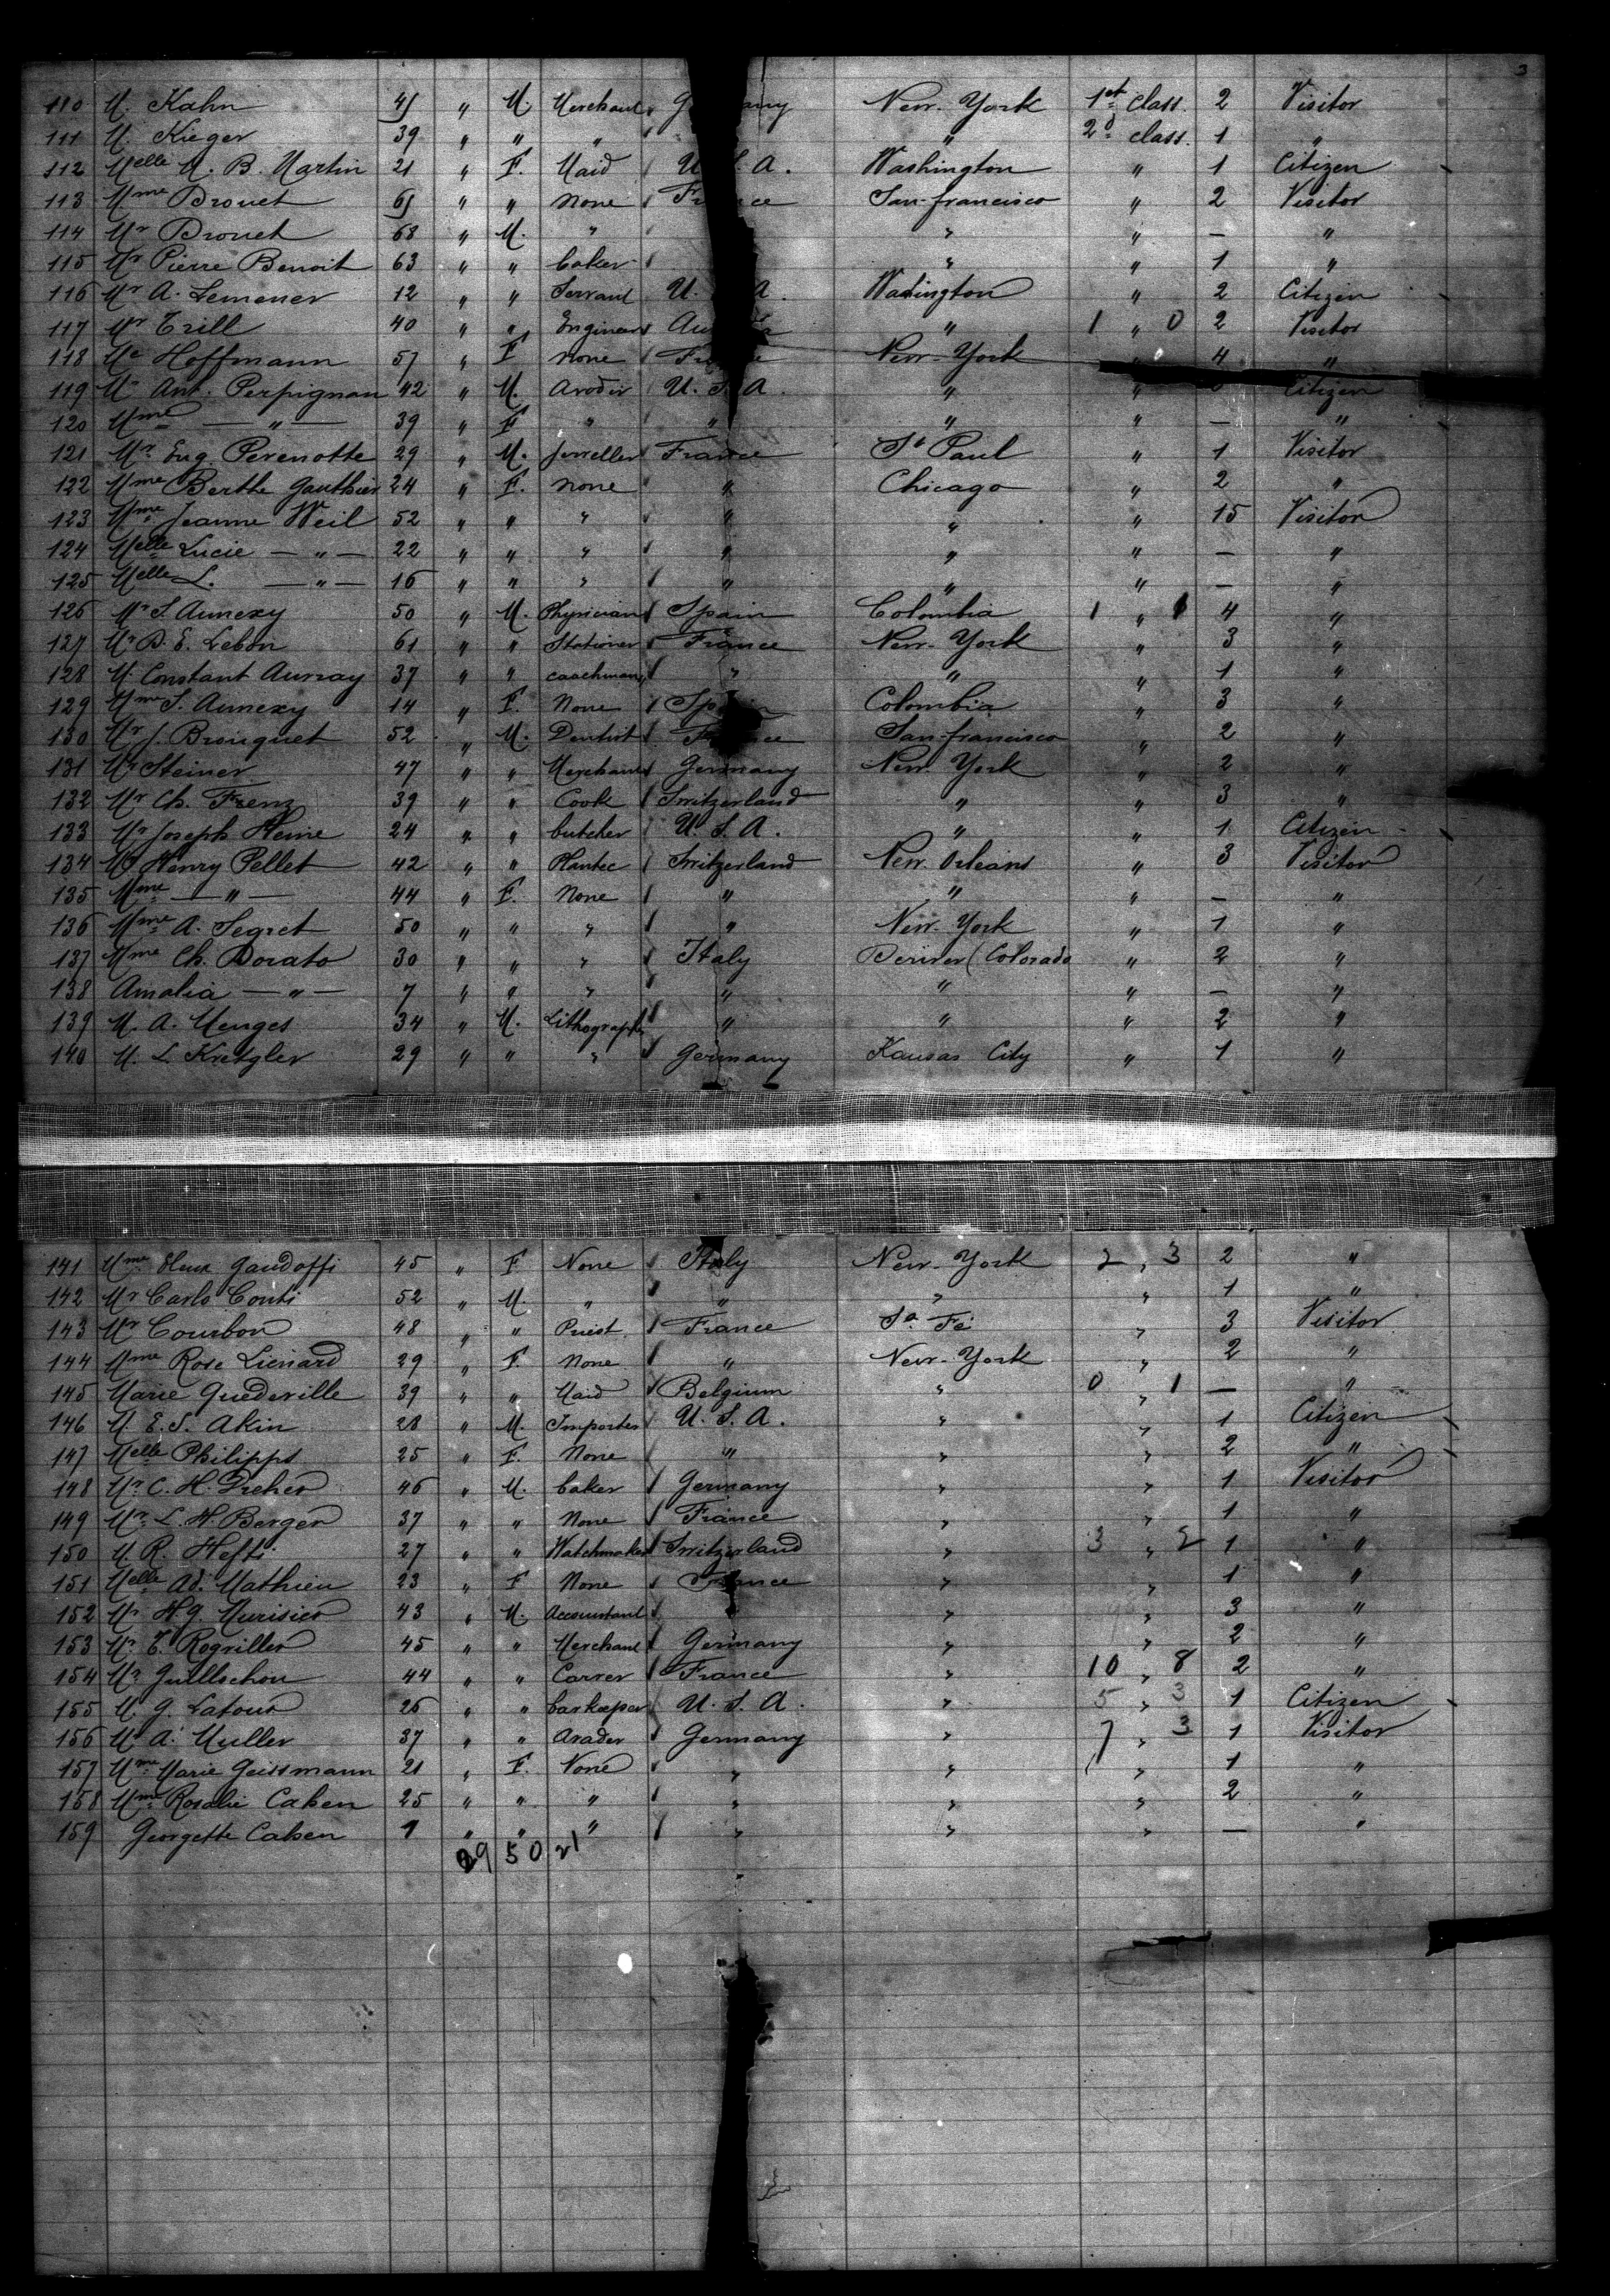 3
110 M. Kahn 45 " M. Merchant G any New-York 1st class. 2 Visitor
111 M. Kieger 39 " " " " 2d class. 1 "
112 Melle M. B. Martin 21 " F. Maid U. S. A. Washington " 1 Citizen
113 Mme Drouet 65 " " None France San-francisco " 2 Visitor
114 Mr Drouet 68 " M. " " " — "
115 Mr Pierre Benoit 63 " " baker " " 1 "
116 Mr A. Lemener 12 " " Servant U. A. Washington " 2 Citizen
117 Mr Trill 40 " " Engineer Au " 1 " 0 2 Visitor
118 Me Hoffmann 57 " F none France New-York " 4 "
119 Mr Ant. Perpignan 42 " M. U. S. A. " " Citizen
120 Mme — " — 39 " F " " " " — "
121 Mr Eug. Perenotte 29 " M. Jeweller France St Paul " 1 Visitor
122 Mme Berthe Gauthier 24 " F. none " Chicago " 2 "
123 Mme Jeanne Weil 52 " " " " " " 15 Visitor
124 Melle Lucie — " — 22 " " " " " " — "
125 Melle L. — " — 16 " " " " " " — "
126 Mr S. Aunexy 50 " M. Physician Spain Colombia 1 " 1 4 "
127 Mr D. E. Lebon 61 " " Stationer France New-York " 3 "
128 M. Constant Auvray 37 " " coachman " " " 1 "
129 Mme S. Aunexy 14 " F. None Spain Colombia " 3 "
130 Mr J. Brouquet 52 " M. Dentist France San-francisco " 2 "
131 Mr Steiner 47 " " Merchant Germany New-York " 2 "
132 Mr Ch. Frenz 39 " " Cook Switzerland " " 3 "
133 Mr Joseph Heine 24 " " butcher U. S. A. " " 1 Citizen
134 Mr Henry Pellet 42 " " Switzerland New-Orleans " 3 Visitor
135 Mme — " — 44 " F. None " " " — "
136 Mme A. Segret 50 " " " " New-York " 1 "
137 Mme Ch. Dorato 30 " " " Italy Denver (Colorado " 2 "
138 Amalia — " — 7 " " " " " " — "
139 M. A. Menges 34 " M. Lithograph " " " 2 "
140 M. L. Kretzler 29 " " " Germany Kansas City " 1 "
141 Mme Gandoffi 45 " F None Italy New-York 2 " 3 2 "
142 Mr Carlo Conti 52 " M. " " " " 1 "
143 Mr Courbon 48 " " Priest France Sa Fé " 3 Visitor
144 Mme Rose Lienard 29 " F. None " New-York " 2 "
145 Marie Quedeville 39 " " Maid Belgium " 0 " 1 — "
146 M. E. S. Akin 28 " M. Importer U. S. A. " " 1 Citizen
147 Melle Philipps 25 " F. None " " " 2 "
148 Mr C. H. Dreher 46 " M. baker Germany " " 1 Visitor
149 Mr L. H. Berger 37 " " None France " " 1 "
150 M. R. Hefti 27 " " Watchmaker Switzerland " 3 " 2 1 "
151 Melle Ad. Mathieu 23 " F None France " " 1 "
152 Mr H. G. Murisier 43 " M. Accountant " " " 3 "
153 Mr E. Rogviller 45 " " Merchant Germany " " 2 "
154 Mr Guillochon 44 " " Carver France " 10 " 8 2 "
155 M. G. Latour 26 " " barkeeper U. S. A. " 5 " 3 1 Citizen
156 M. A. Muller 37 " " Germany " 7 " 3 1 Visitor
157 Mme Marie Geissmann 21 " F. None " " " 1 "
158 Mme Rosalie Cahen 25 " " " " " " 2 "
159 Georgette Cahen 1 " " " " " " — "
29 50 21